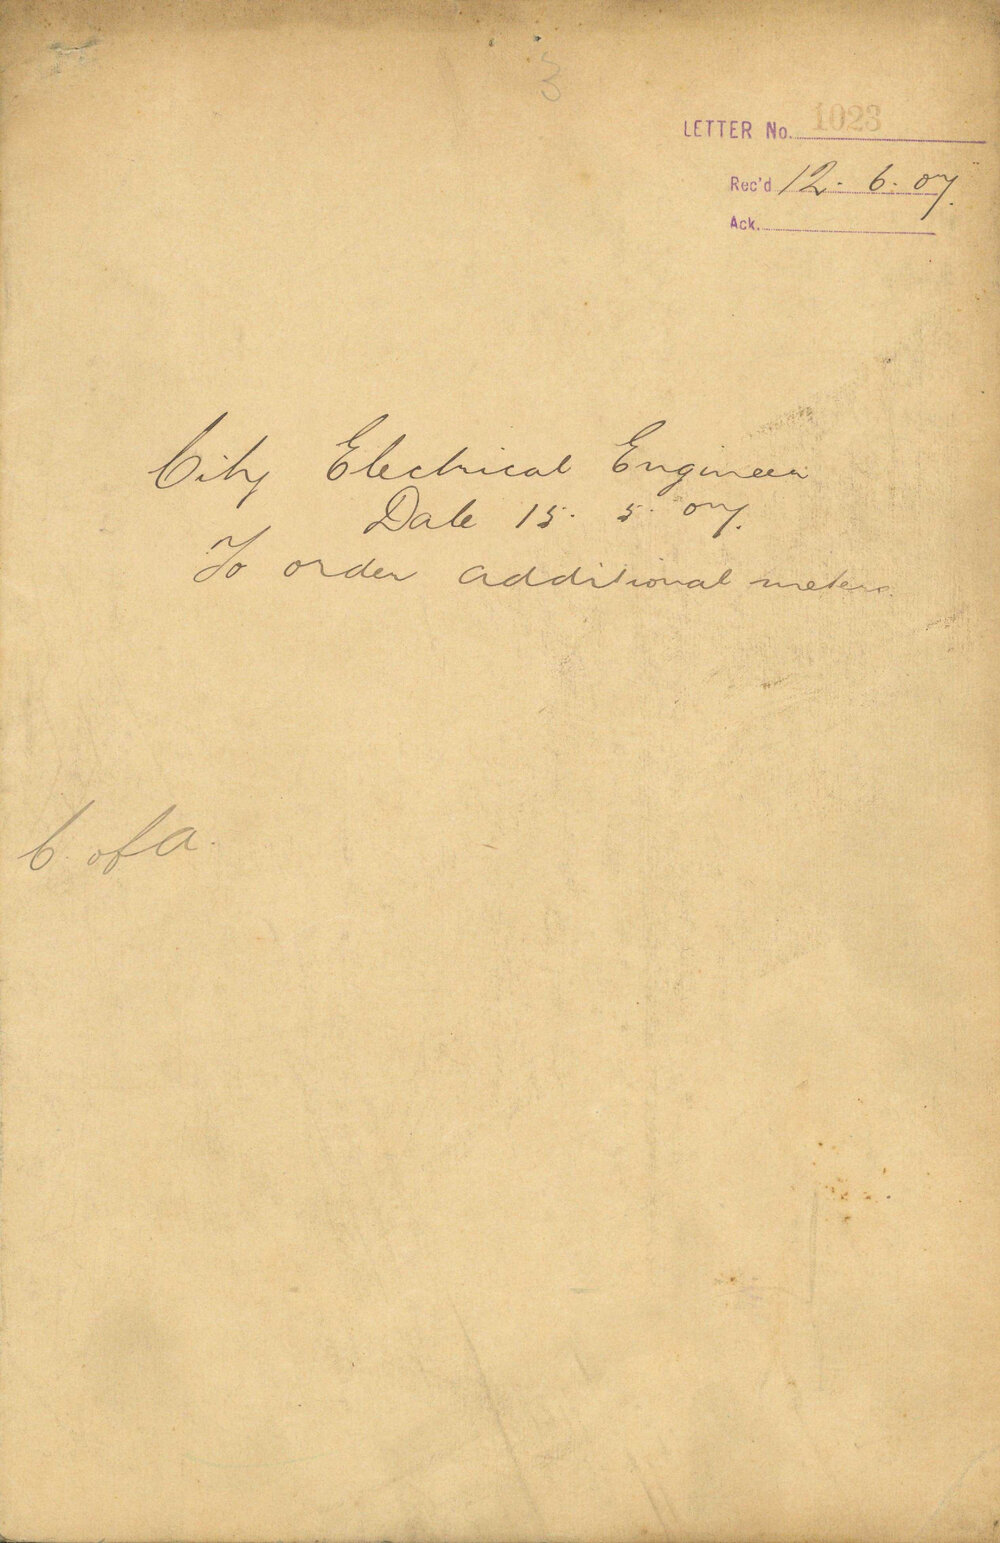 3
LETTER No. 1023
Rec'd 12. 6. 07.
Ack.
City Electrical Engineer
Date 15. 5. 07.
To order additional meters.
C. of A.